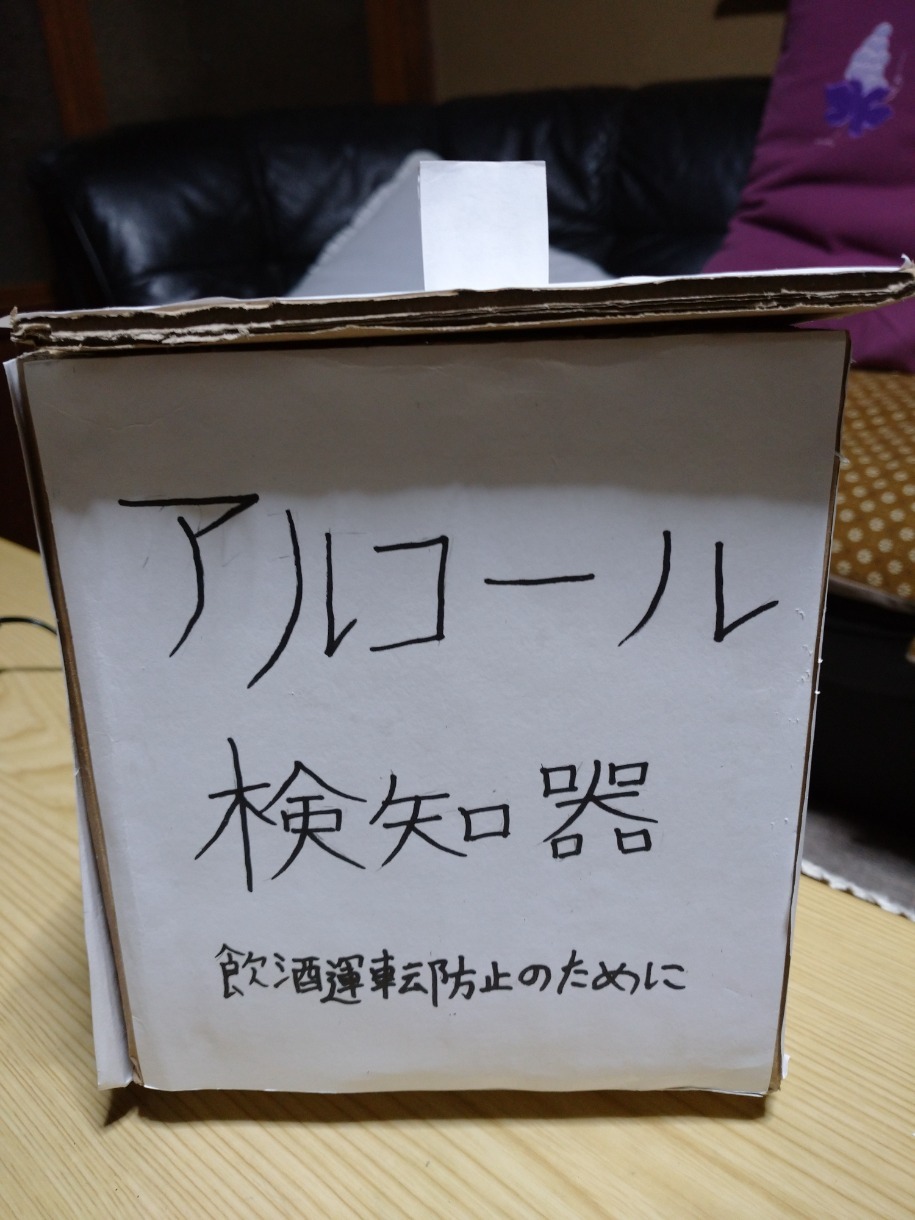 アルコール
検知器
飲酒運転防止のために